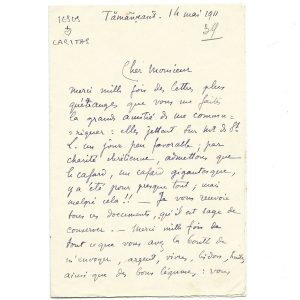 JESUS
CARITAS
Tamanrasset. 14 mai 1911
Cher Monsieur
Merci mille fois des lettres plus
que vous me faites
la grande amitié de me commu-
niquer : elles jettent sur Mr de St
L. un jour peu favorable ; par
charité chrétienne, admettons que
le cafard, un cafard gigantesque,
y a été pour presque tout ; mais
malgré cela !! — Je vous renvoie
tous ces documents, qu'il est sage de
conserver. — Merci mille fois de
tout ce que vous avez la bonté de
m'envoyer, argent, vivres, bidons,
ainsi que des bons légumes : vous